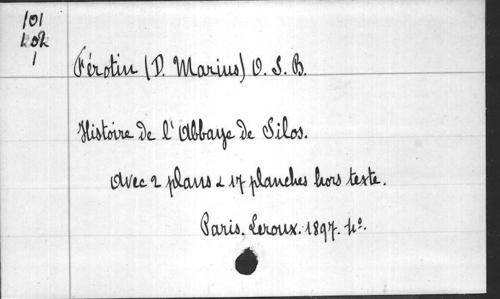 101
1
Férotin (D. Marius) O. S. B.
Histoire de l'Abbaye de Silos.
Avec 2 plans & 17 planches hors texte.
Paris. Leroux. 1897. 4º.